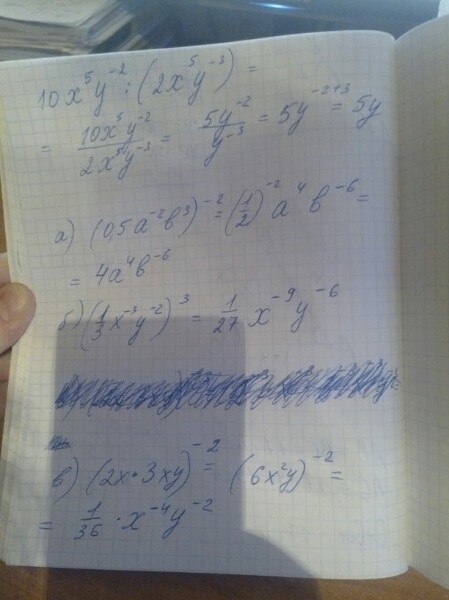 10x⁵y⁻² : (2x⁵y⁻³) =
= 10x⁵y⁻² / 2x⁵y⁻³ = 5y⁻² / y⁻³ = 5y⁻²⁺³ = 5y
а) (0,5a⁻²b³)⁻² = (1/2)⁻² a⁴ b⁻⁶ =
= 4a⁴b⁻⁶
б) (1/3 x⁻³y⁻²)³ = 1/27 x⁻⁹y⁻⁶
в) (2x · 3xy)⁻² = (6x²y)⁻² =
= 1/36 · x⁻⁴y⁻²